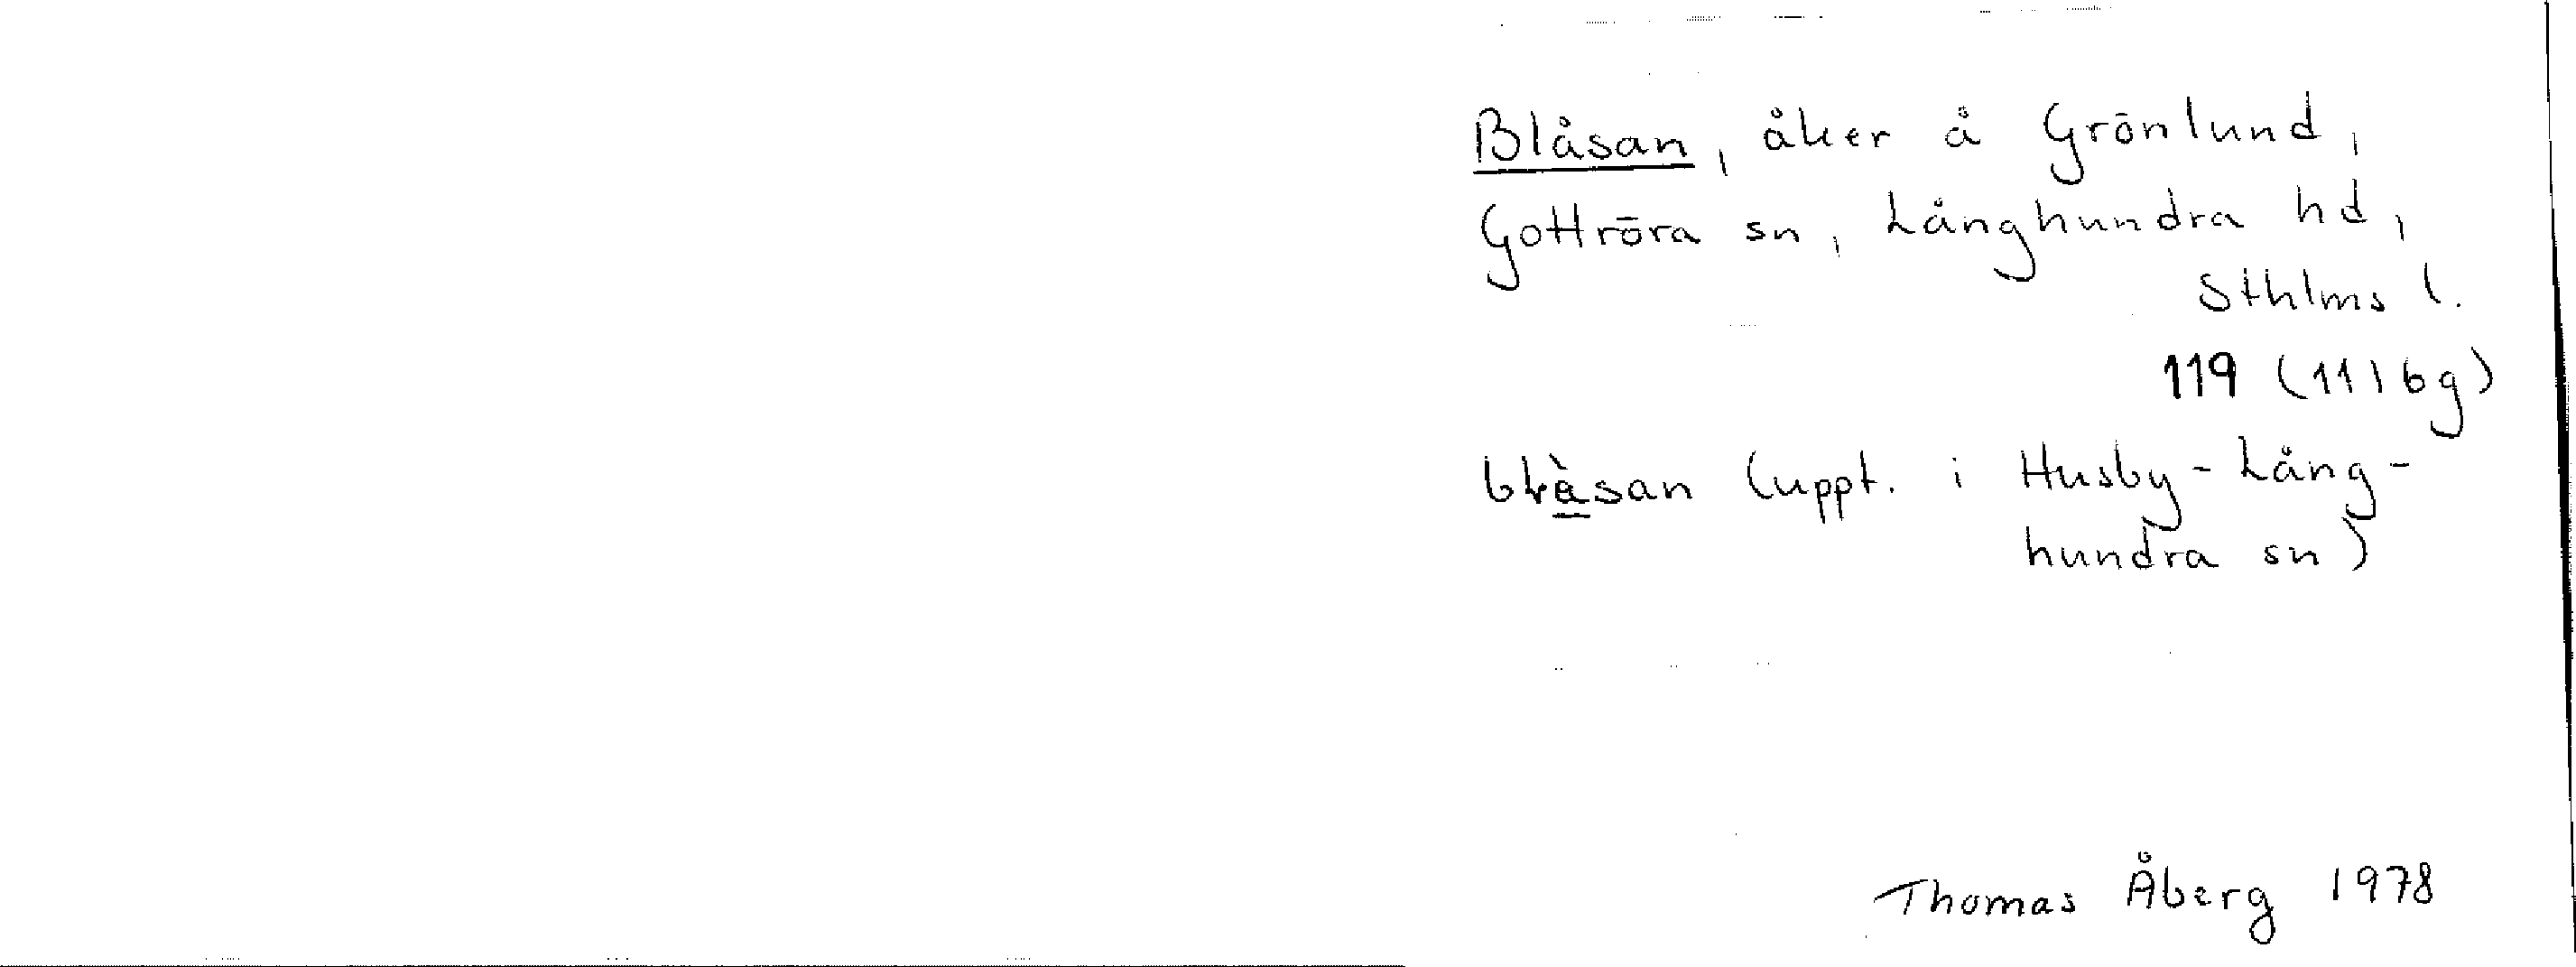 Blåsan, åker å Grönlund,
Gottröra sn, Långhundra hd,
Sthlms l.
119 (11I6g)
blàsan (uppt. i Husby-Lång-
hundra sn)
Thomas Åberg 1978